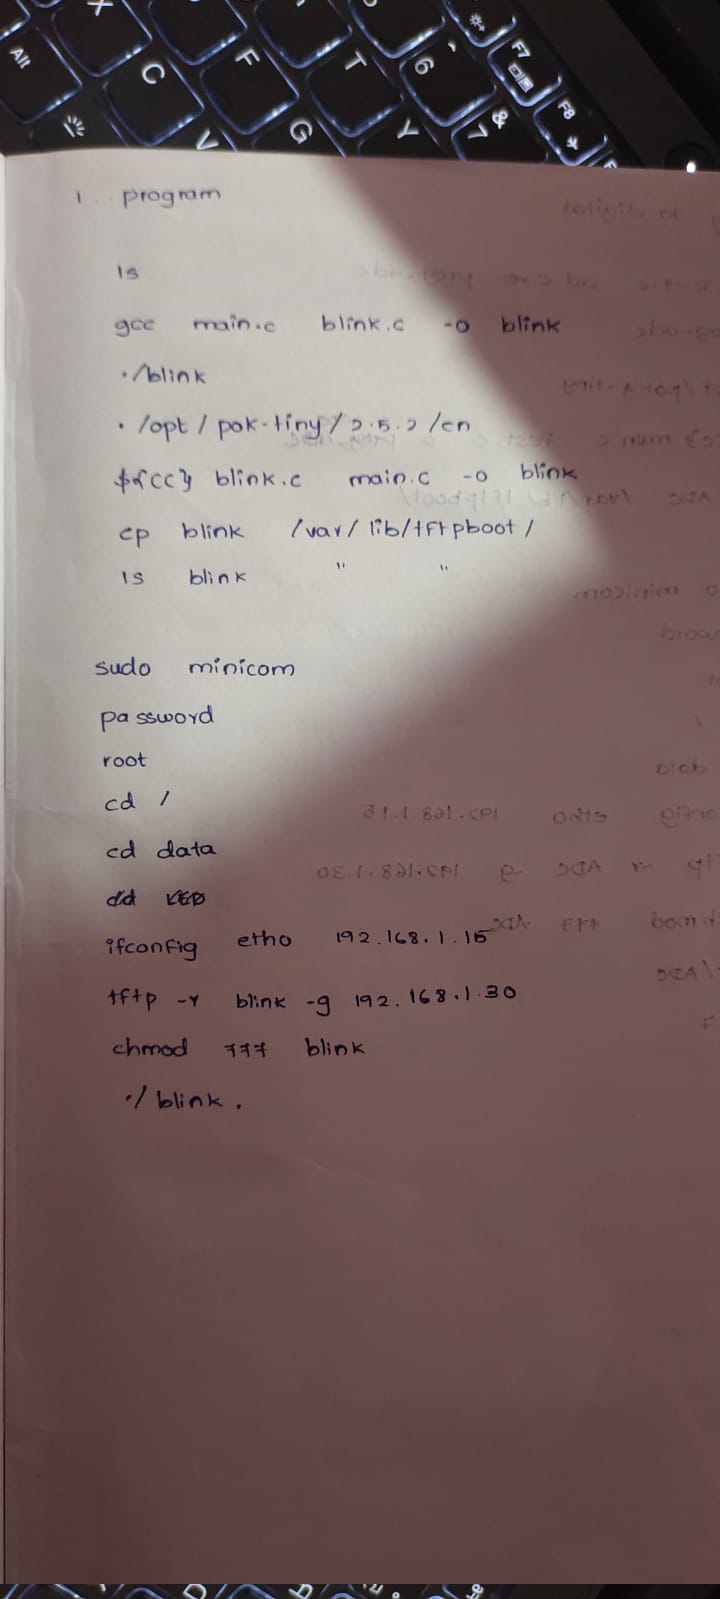 1. program
ls
gcc main.c blink.c -o blink
./blink
. /opt/pok-tiny/2.5.2/en
${CC} blink.c main.c -o blink
cp blink /var/lib/tftpboot/
ls blink " "
sudo minicom
password
root
cd /
cd data
ifconfig etho 192.168.1.15
tftp -r blink -g 192.168.1.30
chmod 777 blink
./blink.